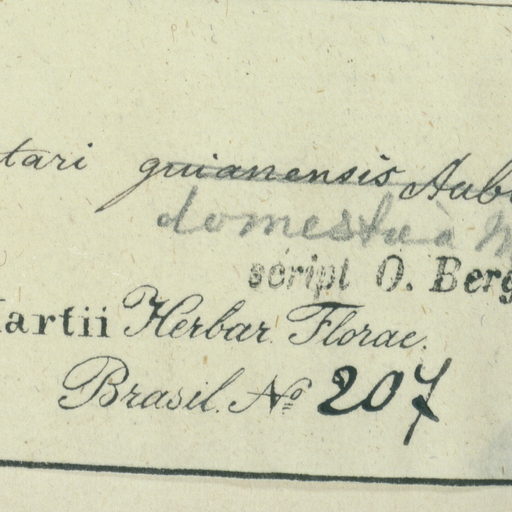 tari guianensis Aub
domestica M
script O. Berg
artii Herbar. Florae.
Brasil. No 207